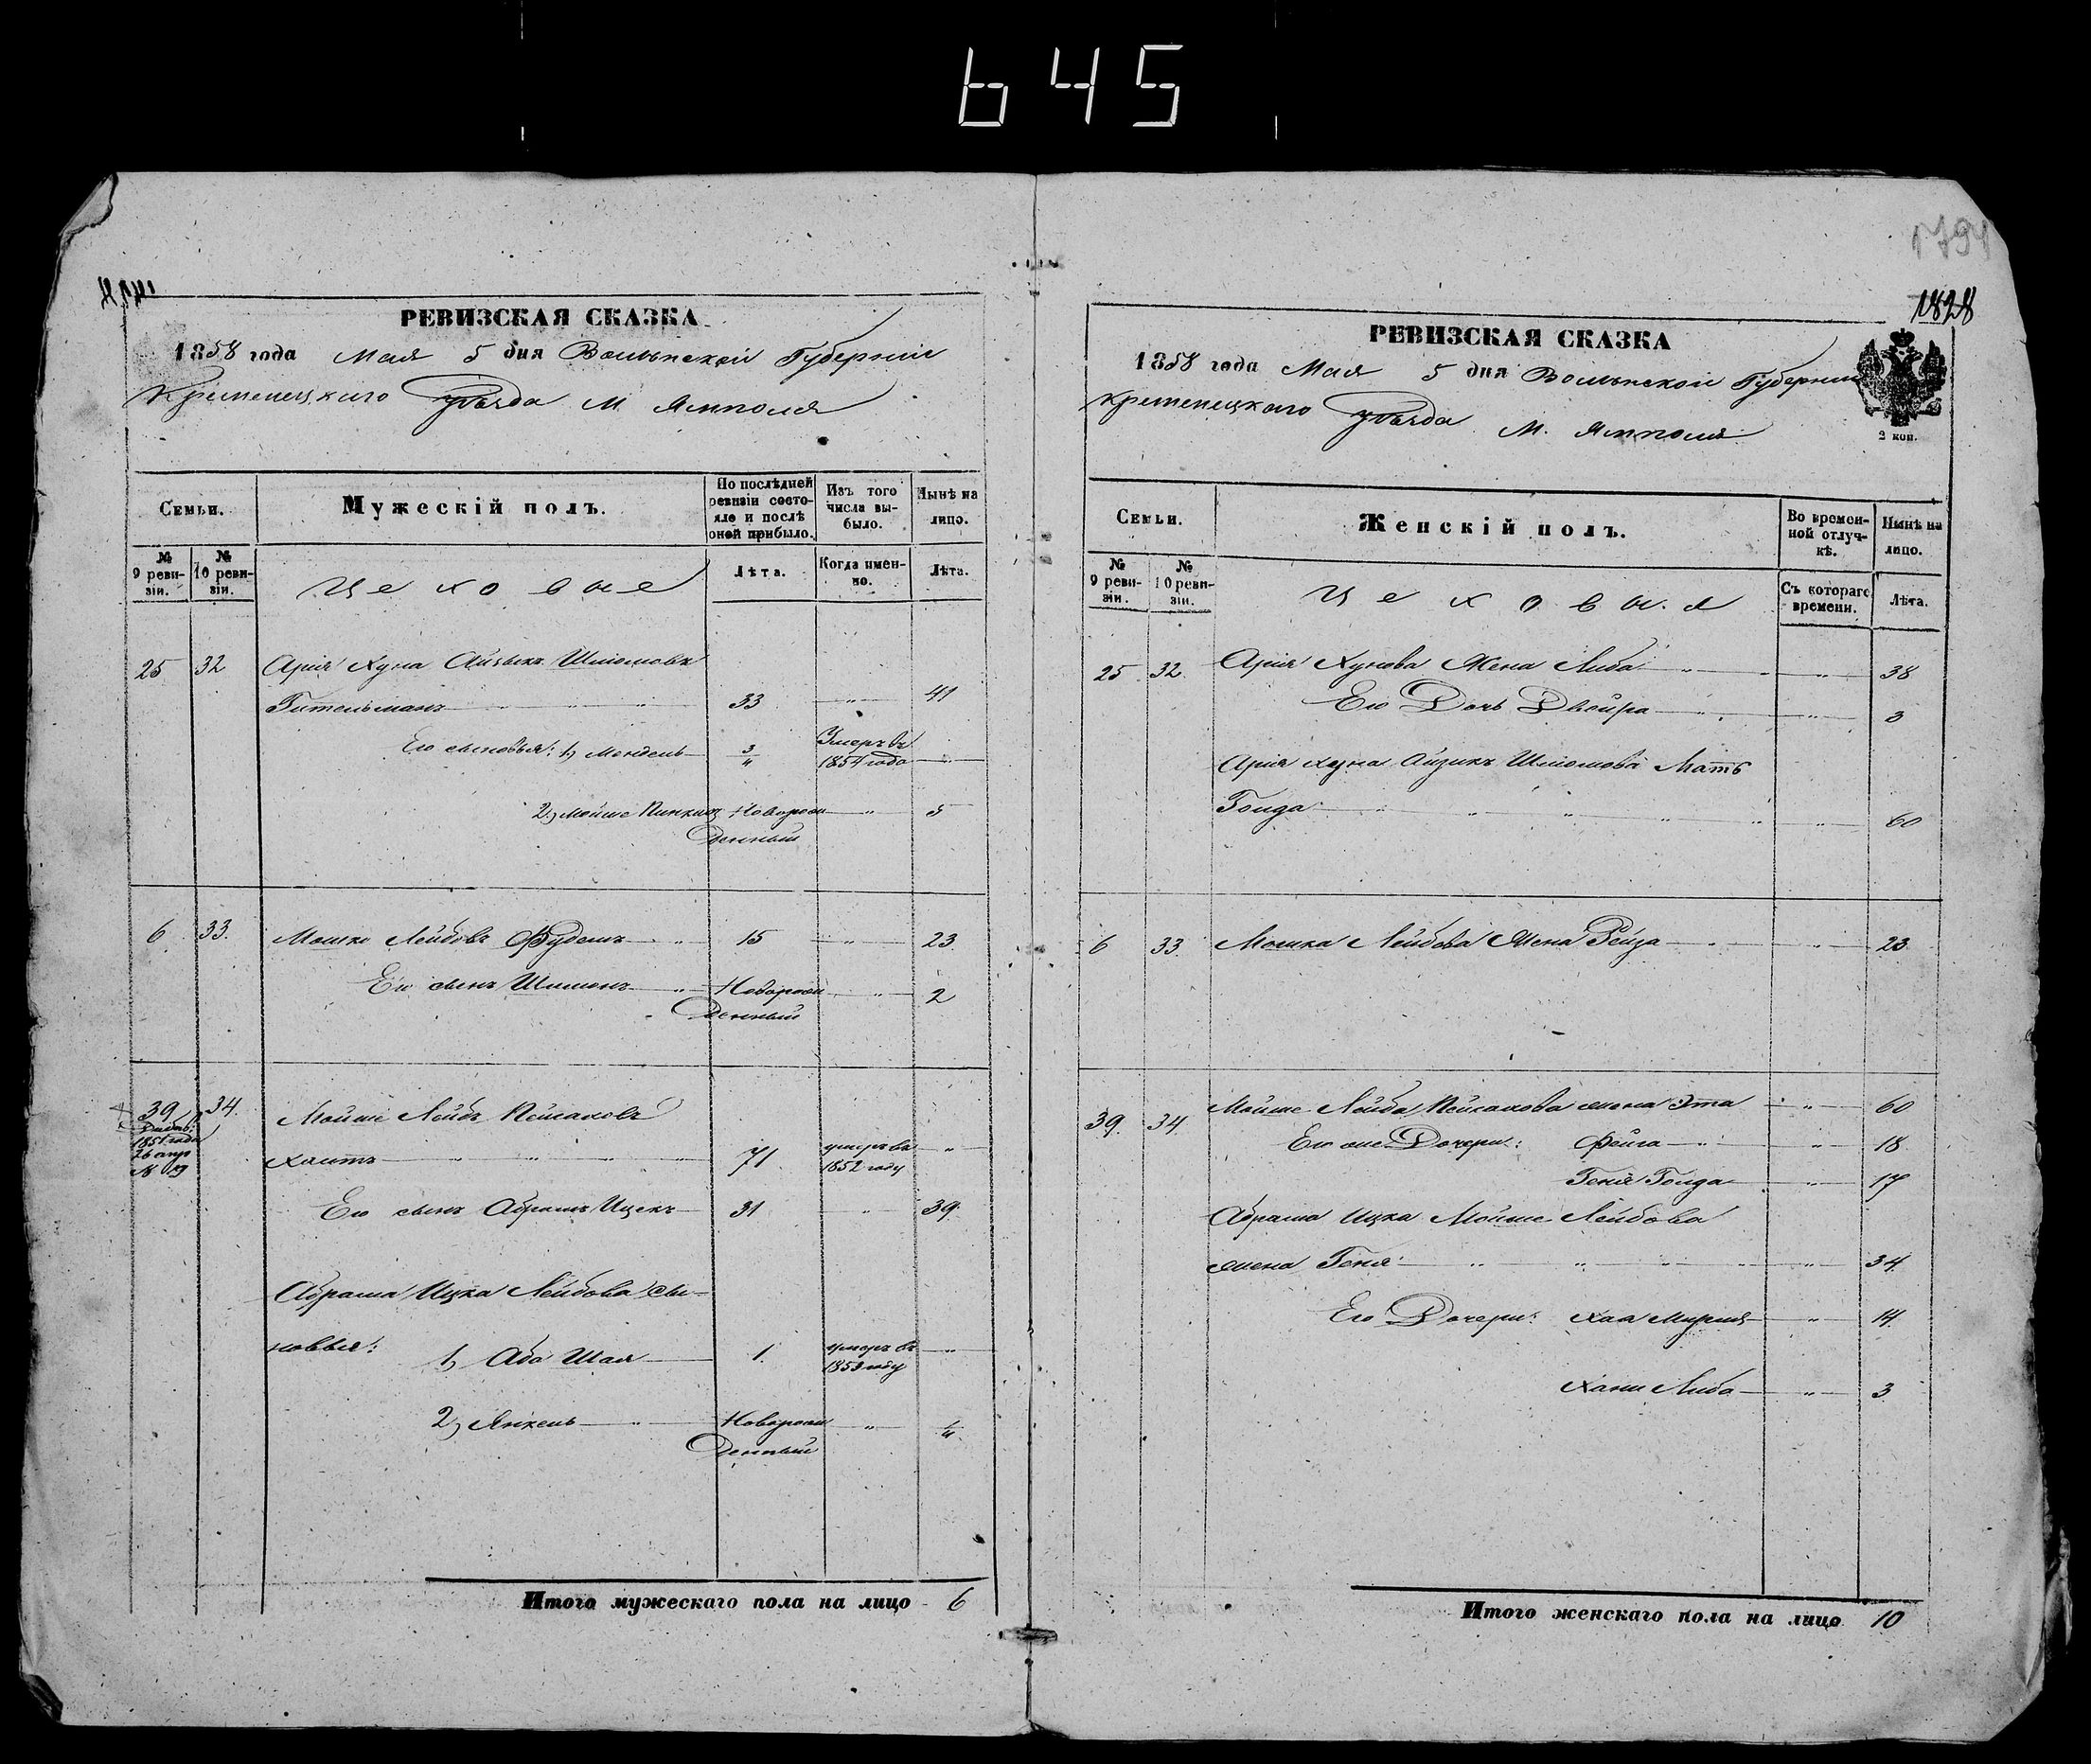 645
1791
1828
РЕВИЗСКАЯ СКАЗКА
1858 года Мая 5 дня Волынской Губерніи
Кременецкаго Уѣзда М. Ямполя
Семьи.
Мужескій полъ.
По послѣдней ревизіи состояло и послѣ оной прибыло.
Изъ того числа выбыло.
Нынѣ на лицо.
№ 9 ревизіи.
№ 10 ревизіи.
Цеховые
Лѣта.
Когда именно.
Лѣта.
25 32 Арія Хуна Айзыкъ Шліомовъ
Гительманъ 33 " 41
Его сыновья: 1, Мендель 3/4 Умеръ въ 1854 года
2, Мойше Пинкасъ Новорож 5
денный
6 33. Мошко Лейбовъ Фудемъ " 15 " 23
Его сынъ Шлимонъ " Новорож " 2
денный
39 34. Мойше Лейбъ Пейсаховъ
1851 года
№
Хаитъ 71 умеръ въ 1852 году "
Его сынъ Абрамъ Ицекъ 31 " 39
Абрама Ицка Лейбова сы-
новья:
1, Аба Шая 1. умеръ въ 1853 году "
2, Янкель " Новорож " 1/4
денный
Итого мужескаго пола на лицо 6
РЕВИЗСКАЯ СКАЗКА
1858 года Мая 5 дня Волынской Губерніи
Кременецкаго Уѣзда М. Ямполя
2 коп.
Семьи.
Женскій полъ.
Во временной отлучкѣ.
Нынѣ на лицо.
№ 9 ревизіи.
№ 10 ревизіи.
Цеховыя
Съ котораго времени.
Лѣта.
25 32 Арія Хунова Жена Либа " " 38
Его Дочь Двойра " " 3
Арія Хуна Айзика Шліомова Мать
Голда " " 60
6 33. Мошка Лейбова Жена Рейза " 23
39. 34 Мойше Лейба Пейсахова жена Эта " 60
Его же Дочери: Фейга " " 18
Геня Голда " 17
Абрама Ицка Мойше Лейбова
жена Геня " " 34
Его Дочери: Хая Мирця " 14
Хани Либа " 3
Итого женскаго пола на лицо 10